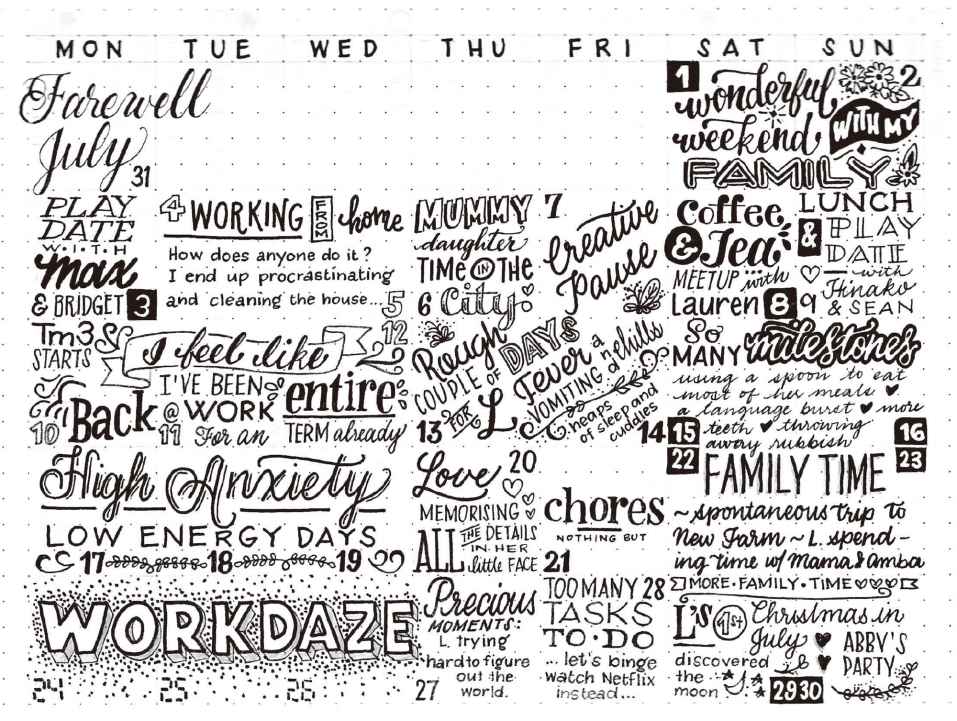 MON TUE WED THU FRI SAT SUN
Farewell
July
31
1
wonderful
weekend
WITH MY
2
FAMILY
PLAY
DATE
W·I·T·H
max
& BRIDGET 3
4 WORKING FROM home
How does anyone do it?
I end up procrastinating
and cleaning the house... 5
MUMMY
daughter
TIME IN THE
6 City
7
Creative
Pause
Coffee
& Tea
MEETUP with
Lauren 8
LUNCH
& PLAY
DATE
with
Hinako
9 & SEAN
Tm3
STARTS
Back
10
I feel like
12
I'VE BEEN
@ WORK
11 For an
entire
TERM already
Rough
COUPLE OF DAYS
13 FOR L
Fever and chills
VOMITING
heaps
of sleep and
cuddles
14
So
MANY milestones
using a spoon to eat
most of her meals ♥
a language burst ♥ more
teeth ♥ throwing
away rubbish
15
16
High Anxiety
LOW ENERGY DAYS
17 18 19
Love 20
MEMORISING
ALL THE DETAILS
IN HER
little FACE
chores
NOTHING BUT
21
22
FAMILY TIME
23
~spontaneous trip to
New Farm ~ L. spend-
ing time w/ Mama & Amba
WORKDAZE
24 25 26
Precious
MOMENTS:
L. trying
hard to figure
out the
world.
27
TOO MANY 28
TASKS
TO·DO
... let's binge
watch Netflix
instead...
MORE·FAMILY·TIME
L'S 1st Christmas in
July
discovered
the
moon
29 30
ABBY'S
PARTY